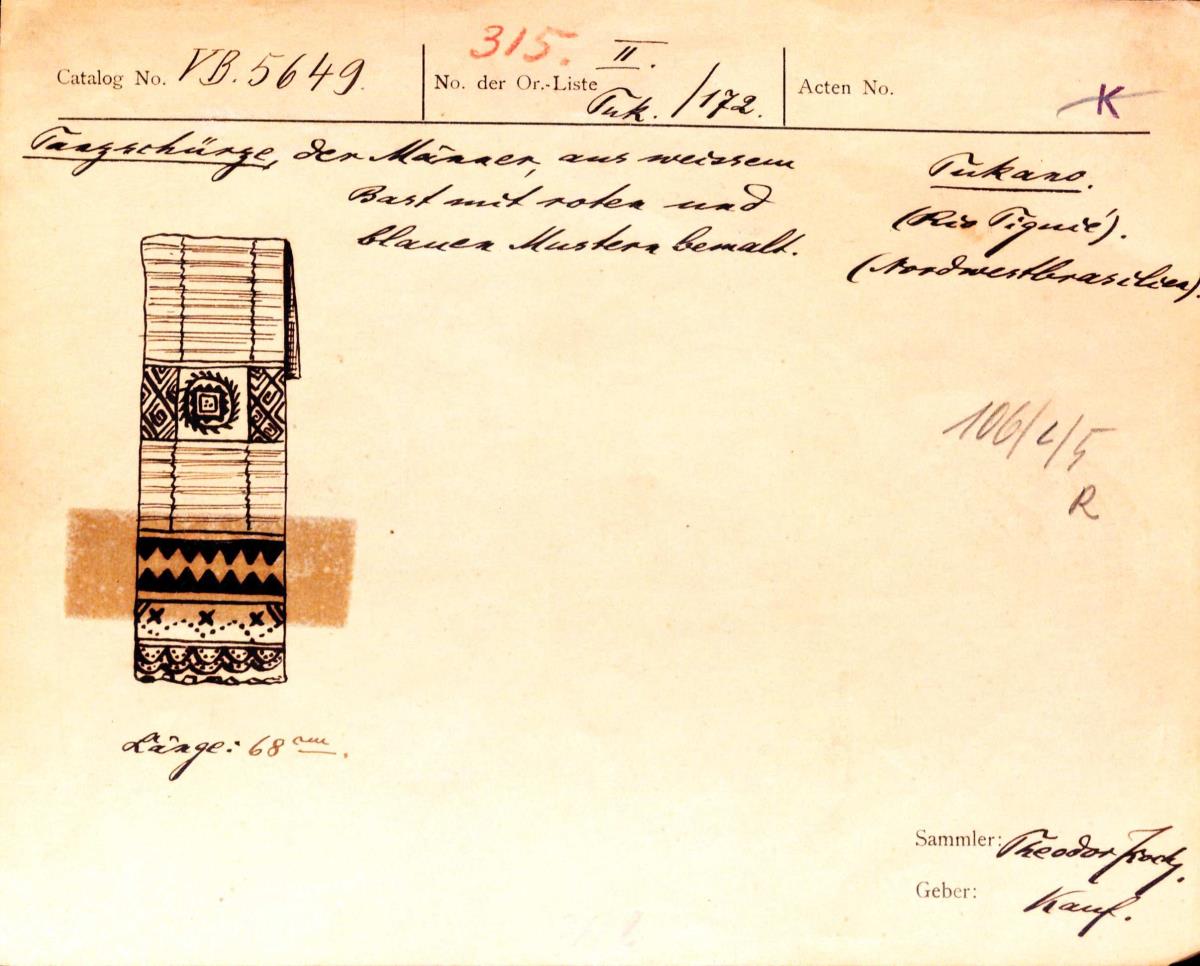 315.
Catalog No. VB. 5649.
No. der Or.-Liste II.
Tuk. /172.
Acten No.
K
Tanzschürze, der Männer, aus weissem
Bast mit roten und
blauen Mustern bemalt.
Tukano.
(Rio Tiquié).
(Nordwestbrasilien).
106/ /5
R
Länge: 68 cm.
Sammler: Theodor Koch.
Geber: Kauf.